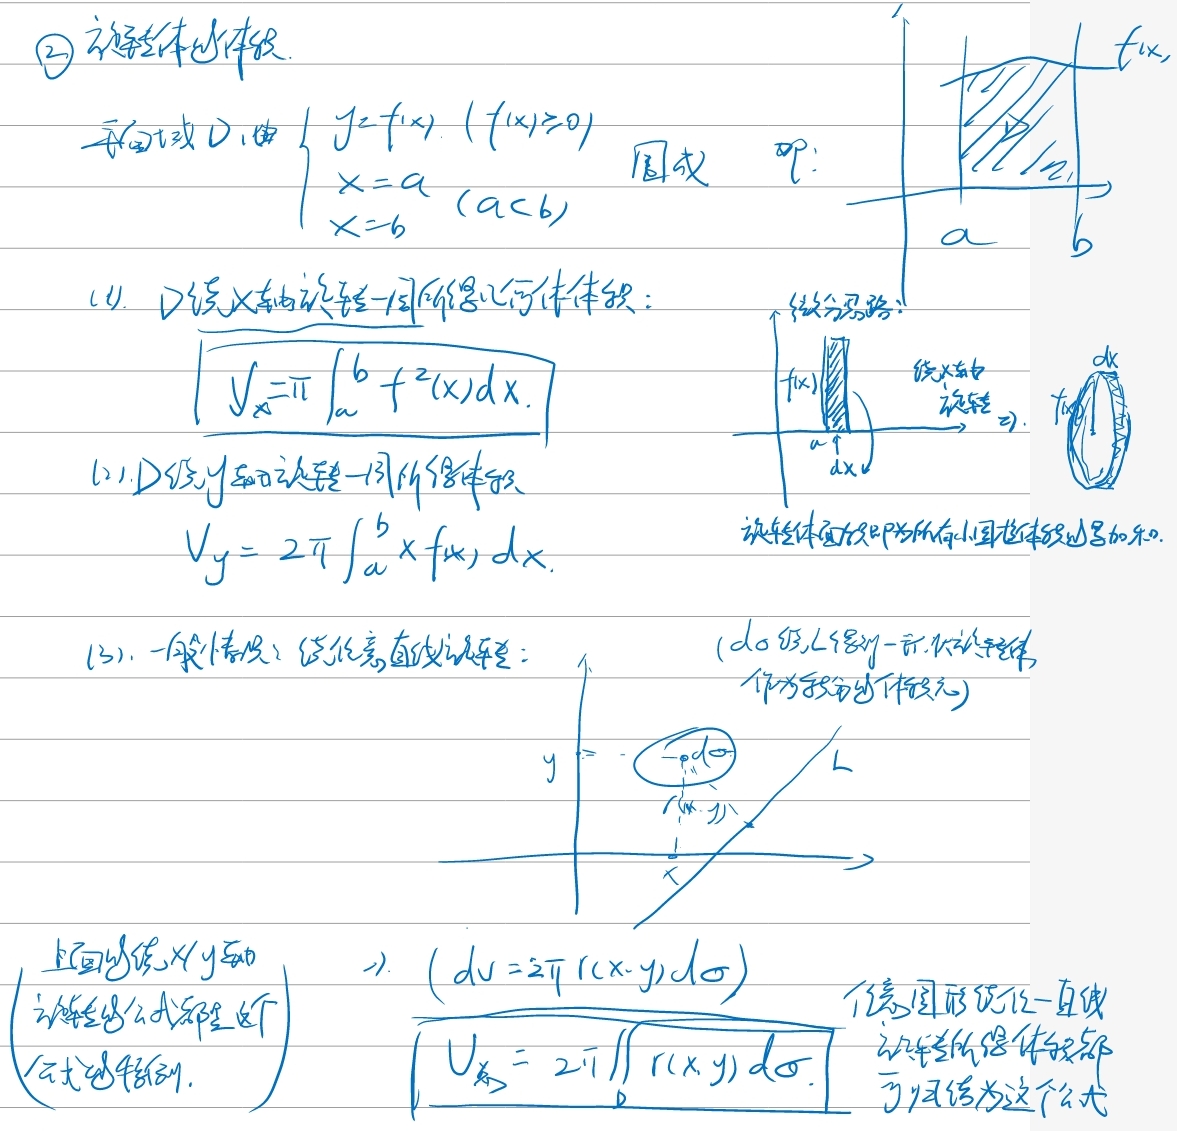 ② 旋转体的体积.
平面域D,由 { y=f(x). (f(x)≥0)
x=a
x=b (a<b)
围成 即:
f(x)
D
a b
(1). D绕x轴旋转一周所得几何体体积:
Vx=π∫_a^b f²(x)dx.
微分思路:
f(x)
a
dx
绕x轴
旋转
⇒.
dx
f(x)
旋转体面积即为所有小圆柱体积的累加和.
(2).D绕y轴旋转一周所得体积
Vy = 2π∫_a^b x f(x) dx.
(3). 一般情况: 绕任意直线旋转:
(dσ绕L得到一环状旋转体
作为积分的体积元)
y
dσ
r(x.y)
x
L
(上面的绕x/y轴
旋转的公式都是这个
公式的特例.)
⇒. (dv=2π r(x.y)dσ)
V = 2π∬_D r(x.y)dσ.
任意图形绕任一直线
旋转所得体积都
可归结为这个公式